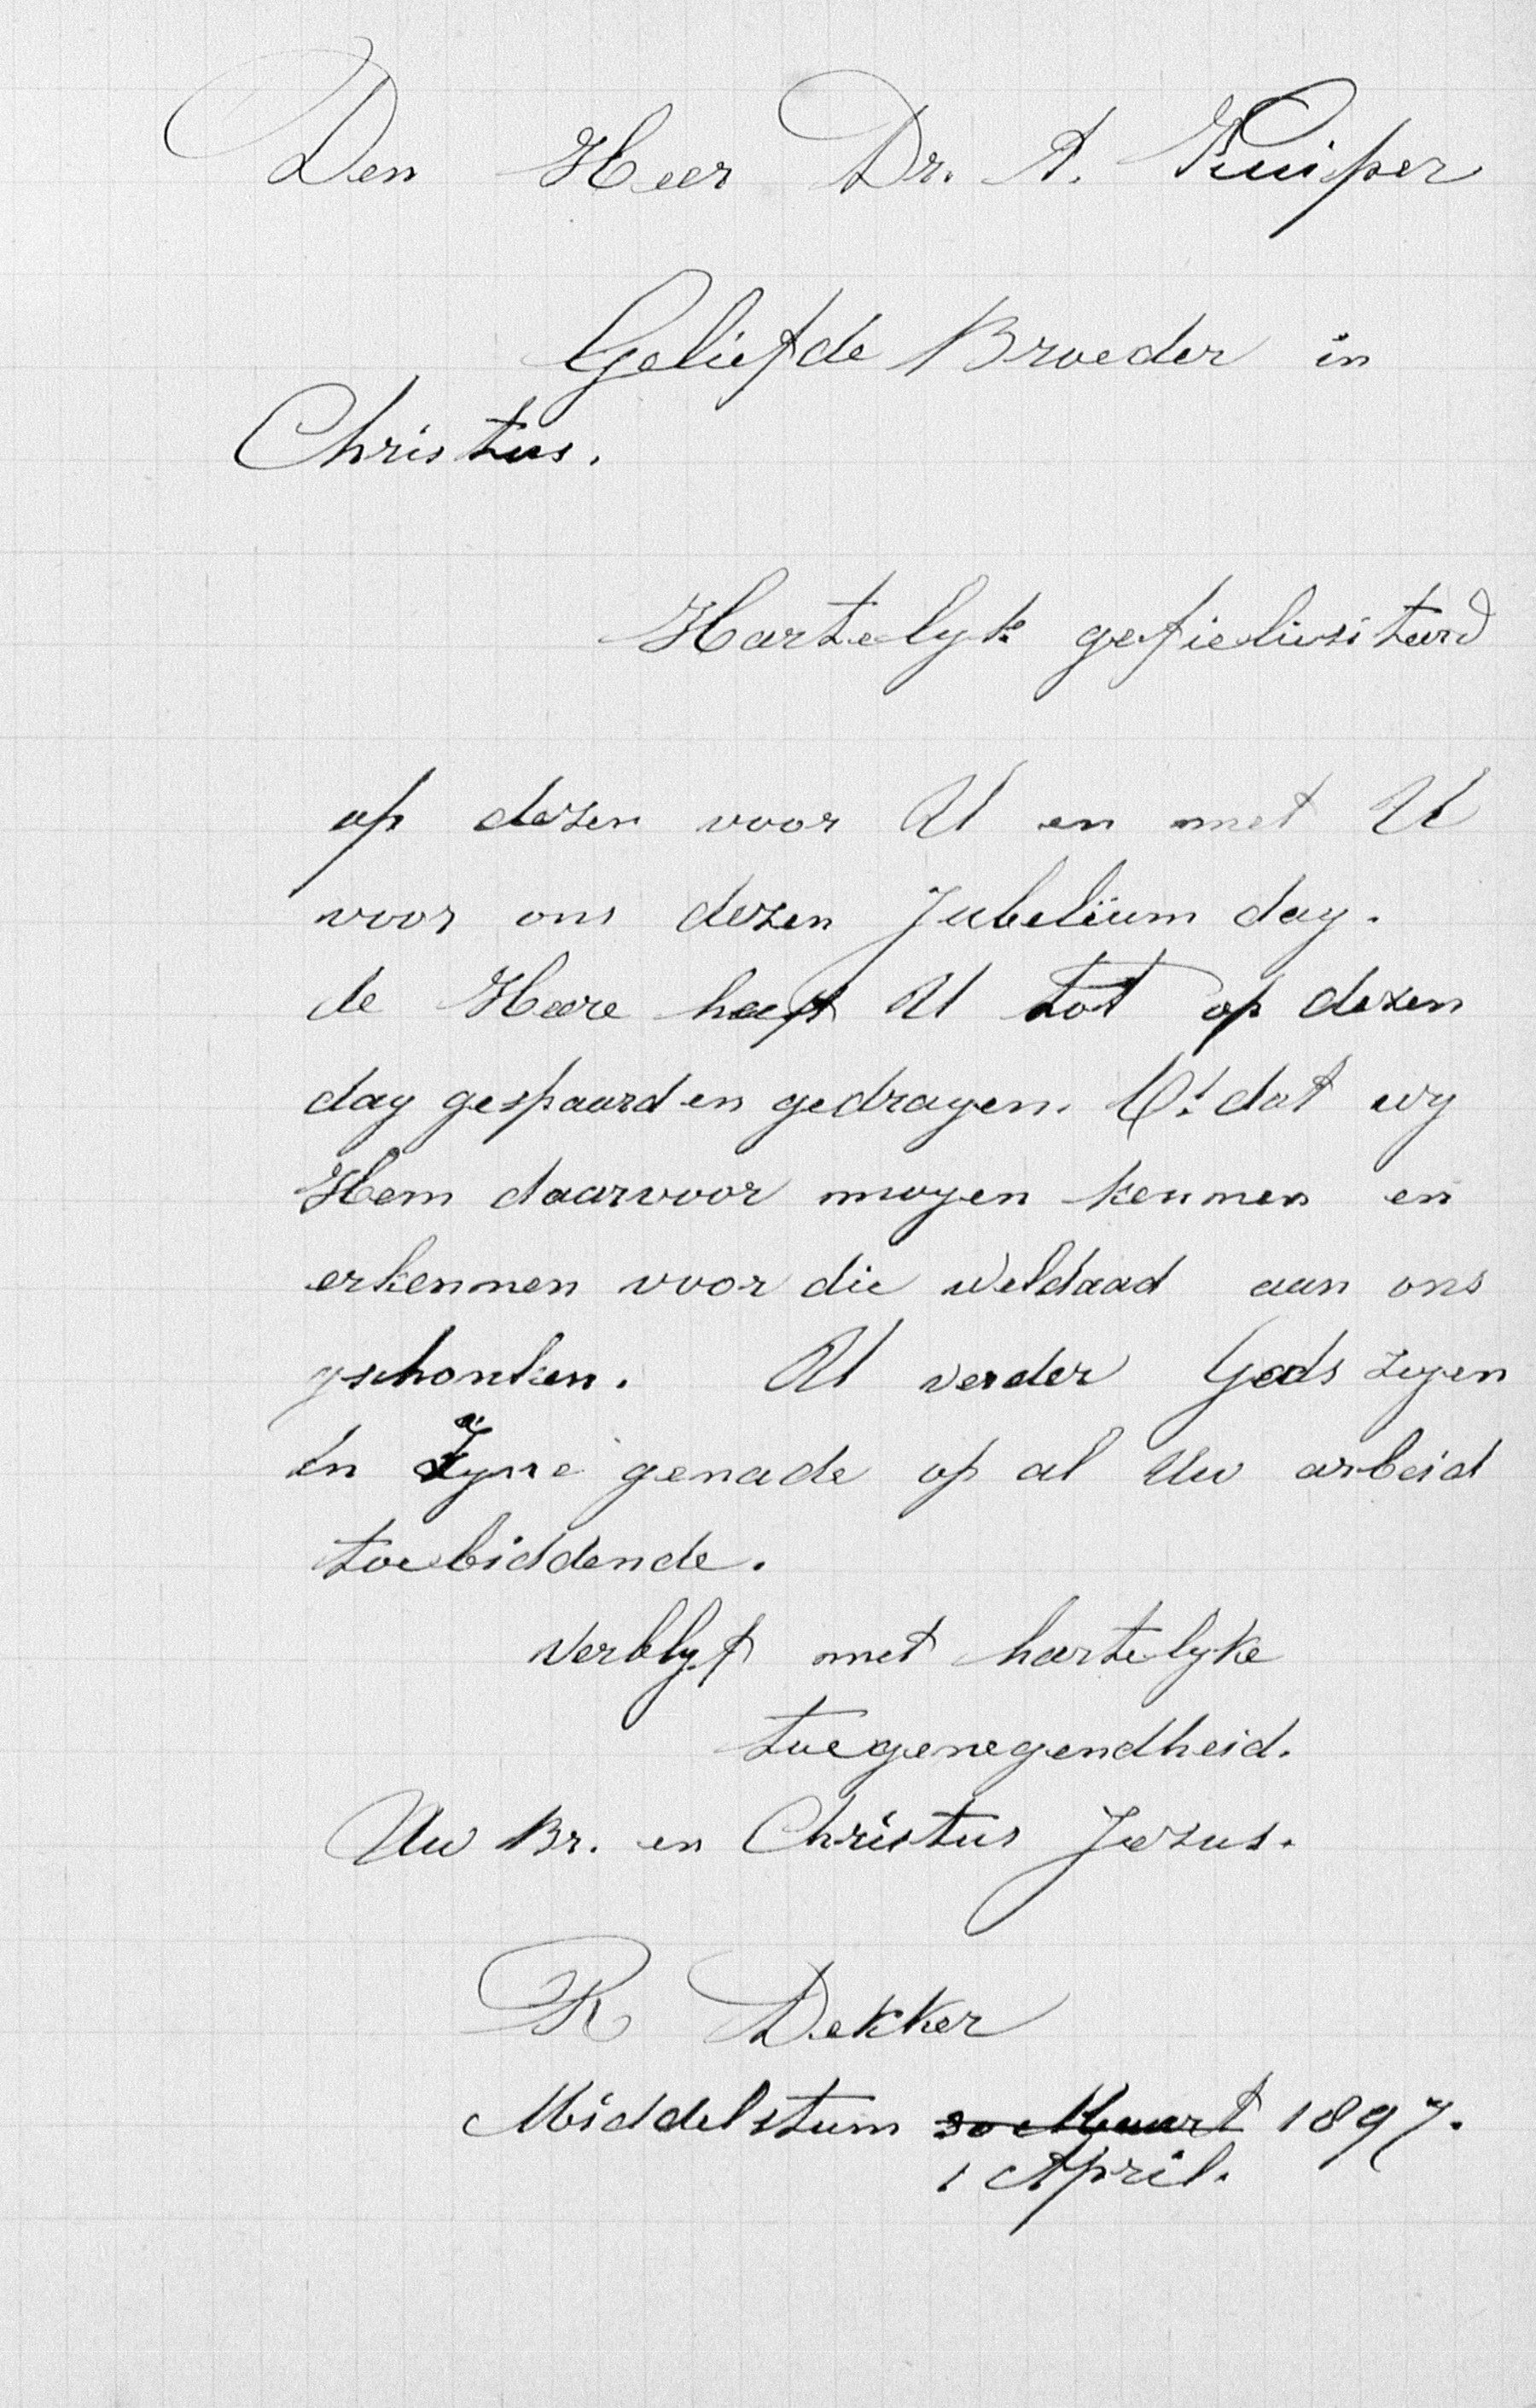 Den Heer Dr. A. Kuiper
Geliefde Broeder in
Christus.
Hartelyk gefieliesiteerd
op dezen voor U en met U
voor ons dezen Jubelïum dag.
de Heere heeft U tot op dezen
dag gespaard en gedragen. O! dat wy
Hem daarvoor mogen kennen en
erkennen voor die weldaad aan ons
gschonken. U verder Gods zegen
in Zyne genade op al Uw arbeid
toebiddende.
Verblyft met hartelyke
toegenegendheid.
Uw Br. en Christus Jezus.
R Dekker
Middelstum 30 Maart 1897.
1 April.